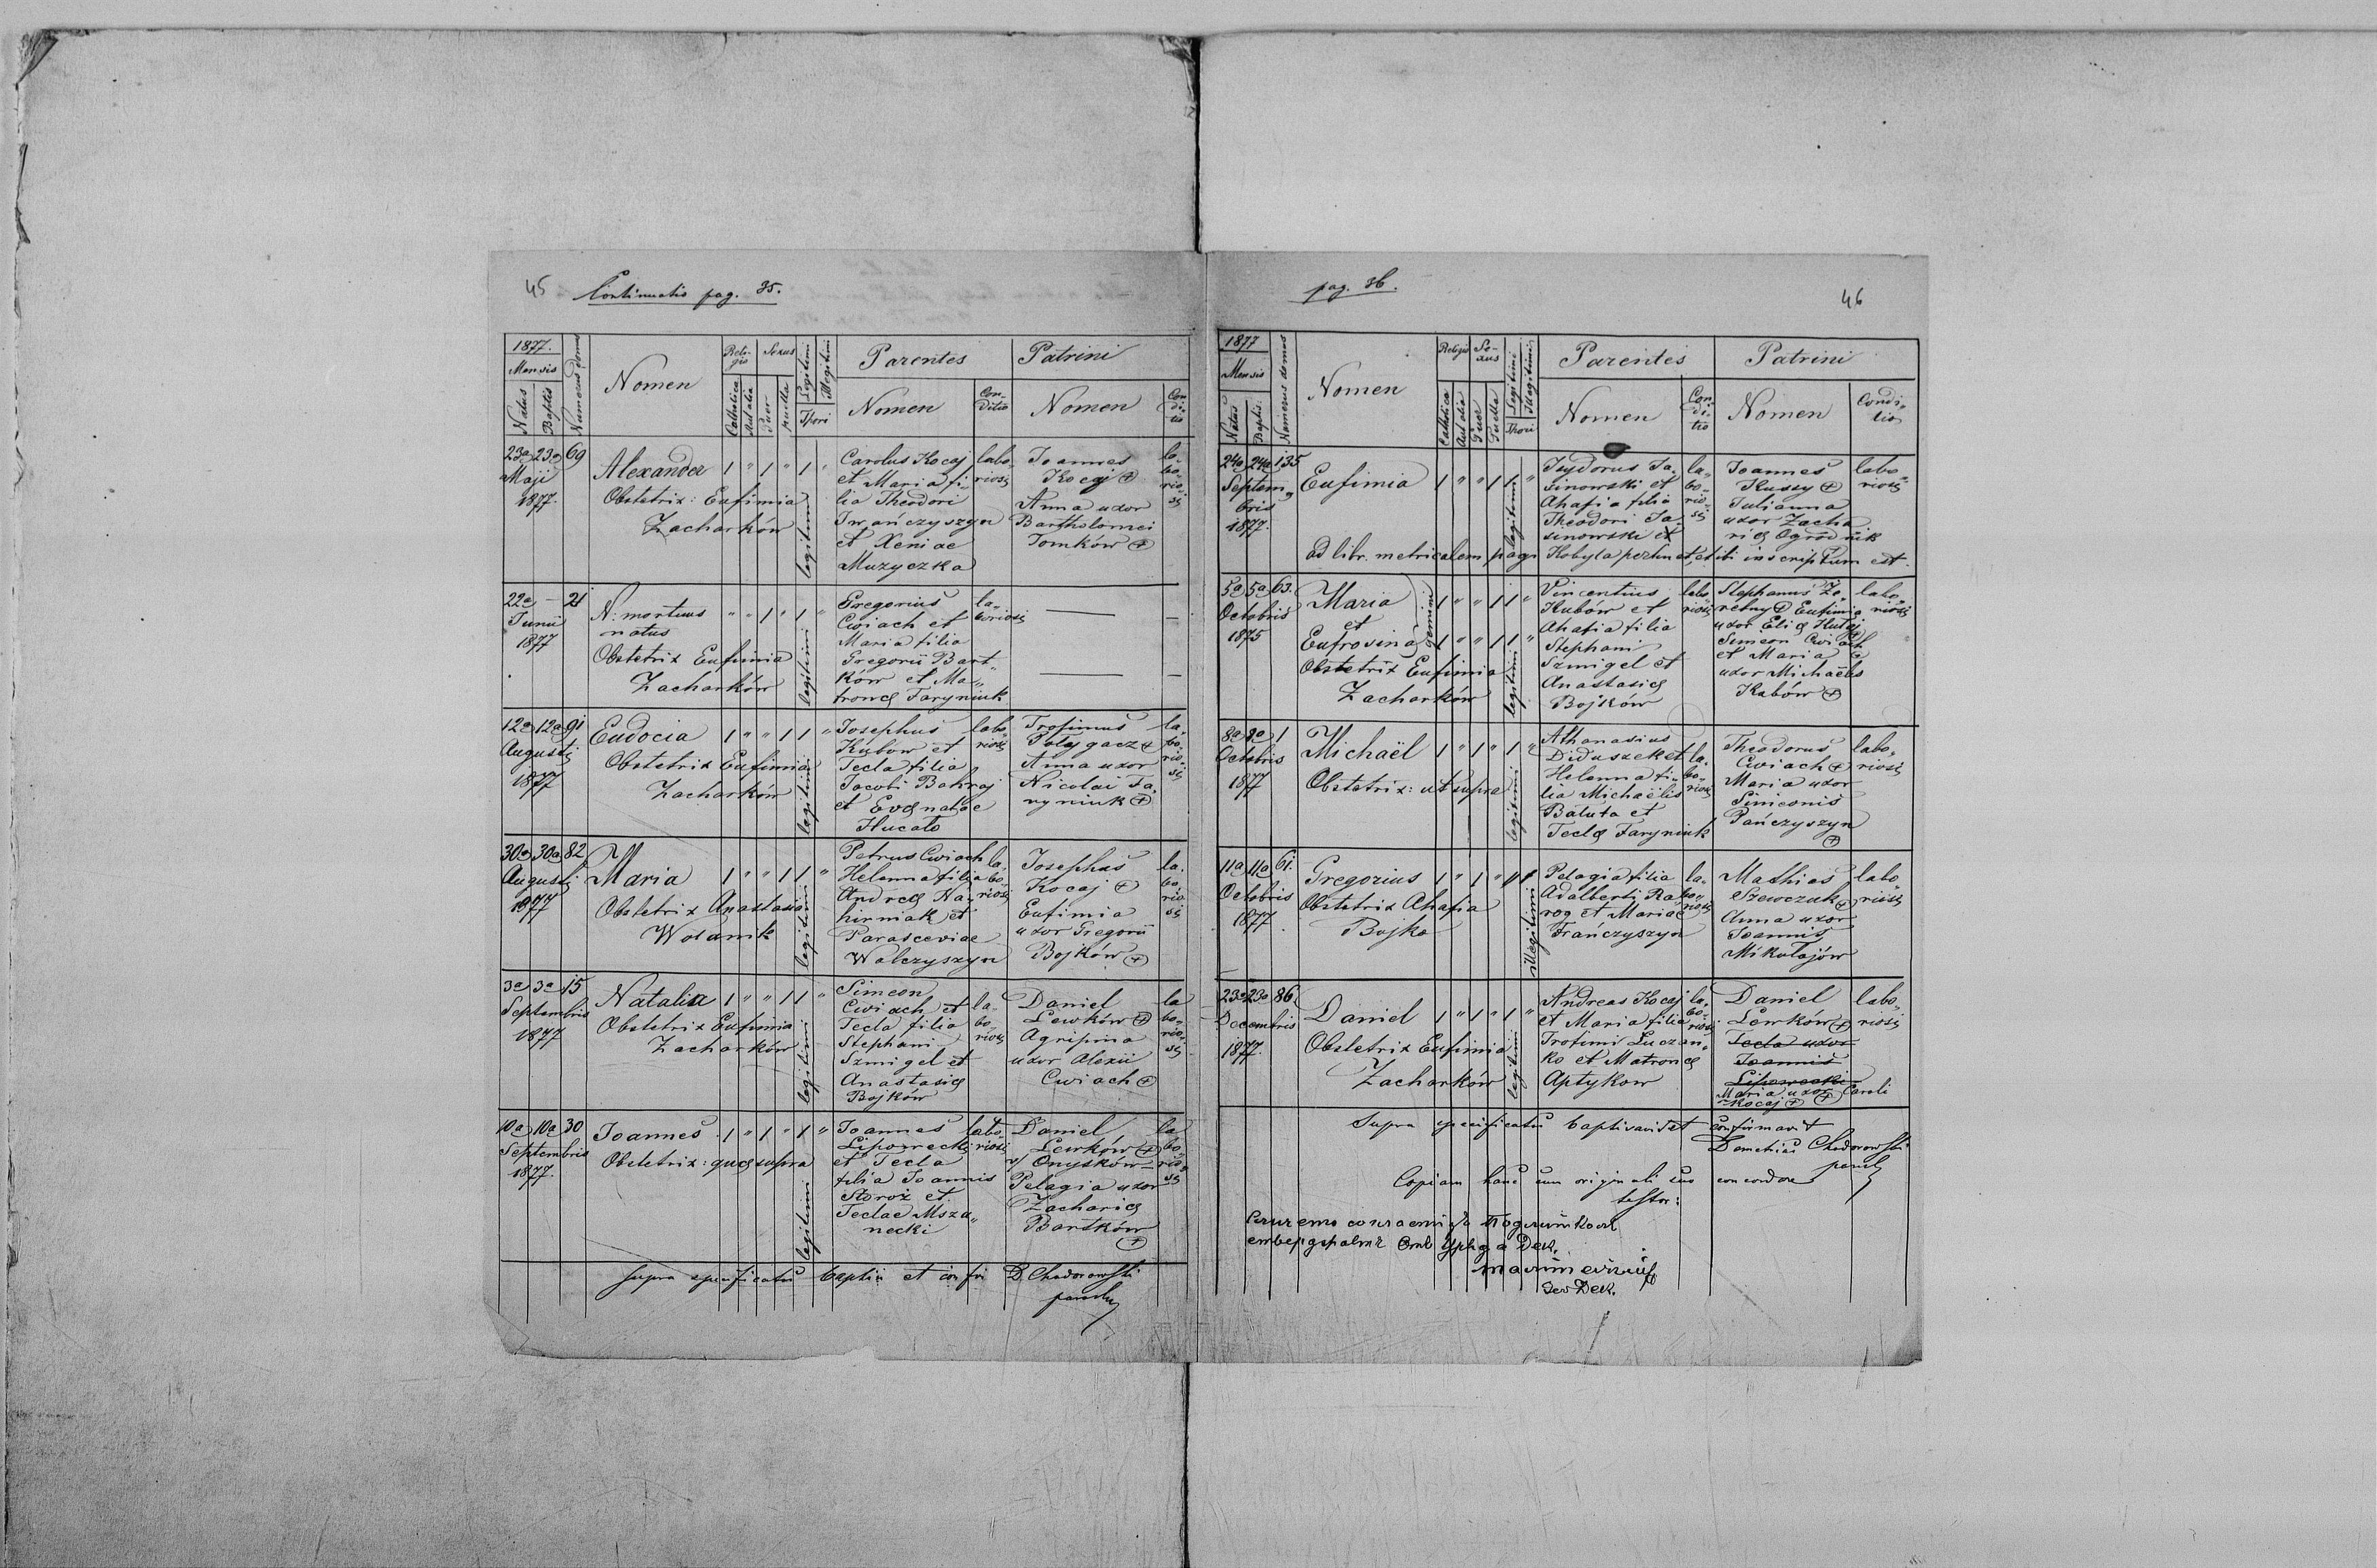 45 Continuatio pag. 35.
1877.
Mensis
Natus
Baptis
Numerus domus
Nomen
Reli-
gio
Catholica
Aut alia
Sexus
Puer
puella
Legitimi
Illegitimi
Thori
Parentes
Nomen
Con-
ditio
Patrini
Nomen
Con
di-
tio
23a 23a 69
Maji
1877.
Alexander 1 " 1 " 1 "
Obstetrix: Eufimia
Zacharków
legitimi
Carolus Kocaj
et Maria fi-
lia Theodori
Iwańczyszyn
et Xeniae
Muzyczka
labo-
riosi
Joannes
Kocaj +
Anna uxor
Bartholomei
Tomków +
la-
bo-
rio-
si
22a — 21
Junii
1877
N: mortuus
natus
Obstetrix Eufimia
Zacharków
" " 1 " 1 "
legitimi
Gregorius
Cwiach et
Maria filia
Gregorii Bart-
ków et Ma-
tronae Faryniuk
la-
boriosi
—
—
12a 12a 91
Augusti
1877
Eudocia 1 " " 1 1 "
Obstetrix Eufimia
Zacharków
legitimi
Josephus
Kubow et
Tecla filia
Jacobi Bahraj
et
Hucało
labo-
riosi
Trofimus
Anna uxor
Nicolai Fa-
ryniuk +
la-
bo-
rio-
si
30a 30a 82
Augusti
1877
Maria 1 " " 1 1 "
Obstetrix Anastasia
Wolanik
legitimi
Petrus Cwiach
Helenna filia
Andreae Na-
hirniak et
Parasceviae
Walczyszyn
la-
bo-
riosi
Josephus
Kocaj +
Eufimia
uxor Gregorii
Bojków +
la-
bo-
rio
si
3a 3a 15
Septembris
1877
Natalia 1 " " 1 1 "
Obstetrix Eufimia
Zacharków
legitimi
Simeon
Cwiach et
Tecla filia
Stephani
Szmigel et
Anastasiae
Bojków
la-
bo-
riosi
Daniel
Lewków +
Agripina
uxor Alexii
Cwiach +
la
bo-
rio-
si
10a 10a 30
Septembris
1877.
Joannes 1 " 1 " 1 "
Obstetrix: quae supra
legitimi
Joannes
Lipowecki
et Tecla
filia Joannis
Storoż et
Teclae Msza-
necki
labo-
riosi
Daniel
Lewków +
v/ Onysków —
Pelagia uxor
Zachariae
Bartków
+
la
bo-
rio-
si
supra specificatos D. Chodorowski
parochus
pag. 36.
46
1877
Mensis
Natus
Baptis
Numerus domus
Nomen
Religio
Catholica
Aut alia
Se-
xus
Puer
Puella
Legitimi
Illegitimi
Thori
Parentes
Nomen
Con-
di-
tio
Patrini
Nomen
Condi-
tio
24a 24a 135
Septem-
bris
1877.
Eufimia 1 " " 1 1 "
legitimi
Isydorus Ja-
sinowski et
Ahafia filia
Theodori Ja-
sinowski et
la-
bo-
rio-
si
Joannes
Kuszy +
Julianna
uxor Zacha
riae Ogrodnik
labo-
riosi
ad libr. metricalem pagi Kobyla pertinet, et ibi inscriptum est.
5a 5a 63.
Octobris
1875
Maria
et
Eufrosina
gemini
1 " " 1 1 "
1 " " 1 1 "
Obstetrix Eufimia
Zacharków
legitimi
Vincentius
Kubów et
Ahafia filia
Stephani
Szmigel et
Anastasiae
Bojków
labo
riosi
Stephanus
+ Eufimia
uxor Eliae Hutaj
Simeon Cwiach
et Maria +
uxor Michaëlis
Kubów +
labo
riosi
8a 8a 1
Octobris
1877
Michaël 1 " 1 " 1 "
Obstetrix: ut supra
legitimi
Athanasius
Diduszek et
Helenna fi-
lia Michaëlis
Bałuta et
Teclae Faryniuk
la-
bo-
riosi
Theodorus
Cwiach +
Maria uxor
Simeonis
Pańczyszyn
+
labo-
riosi
11a 11a 61.
Octobris
1877
Gregorius 1 " 1 "
Obstetrix Ahafia
Bojko
illegitimi
Pelagia filia
Adalberti
rog et Mariae
Frańczyszyn
la-
bo-
riosi
Mathias
Szewczuk +
Anna uxor
Joannis
Mikołajów
labo
riosi
23a 23a 86.
Decembris
1877.
Daniel 1 " 1 " 1 "
Obstetrix Eufimia
Zacharków
legitimi
Andreas Kocaj
et Maria filia
Trofimi Luczen-
ko et Matronae
Aptykow
la-
bo-
riosi
Daniel
Lewków +
Tecla uxor
Joannis
Lipowecki
Maria uxor Caroli
Kocaj +
labo-
riosi
Supra specificatos baptisavit et confirmavit
Demetrius Chodorowski
paroch
Copiam hanc cum originali suo concordare
testor: